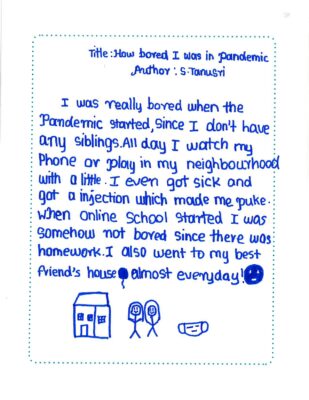 Title: How bored I was in Pandemic
Author: S.Tanusri
I was really bored when the
Pandemic started, Since I don't have
any siblings. All day I watch my
Phone or play in my neighbourhood
with a little. I even got sick and
got a injection which made me puke.
When Online School started I was
somehow not bored since there was
homework. I also went to my best
friend's house almost everyday!